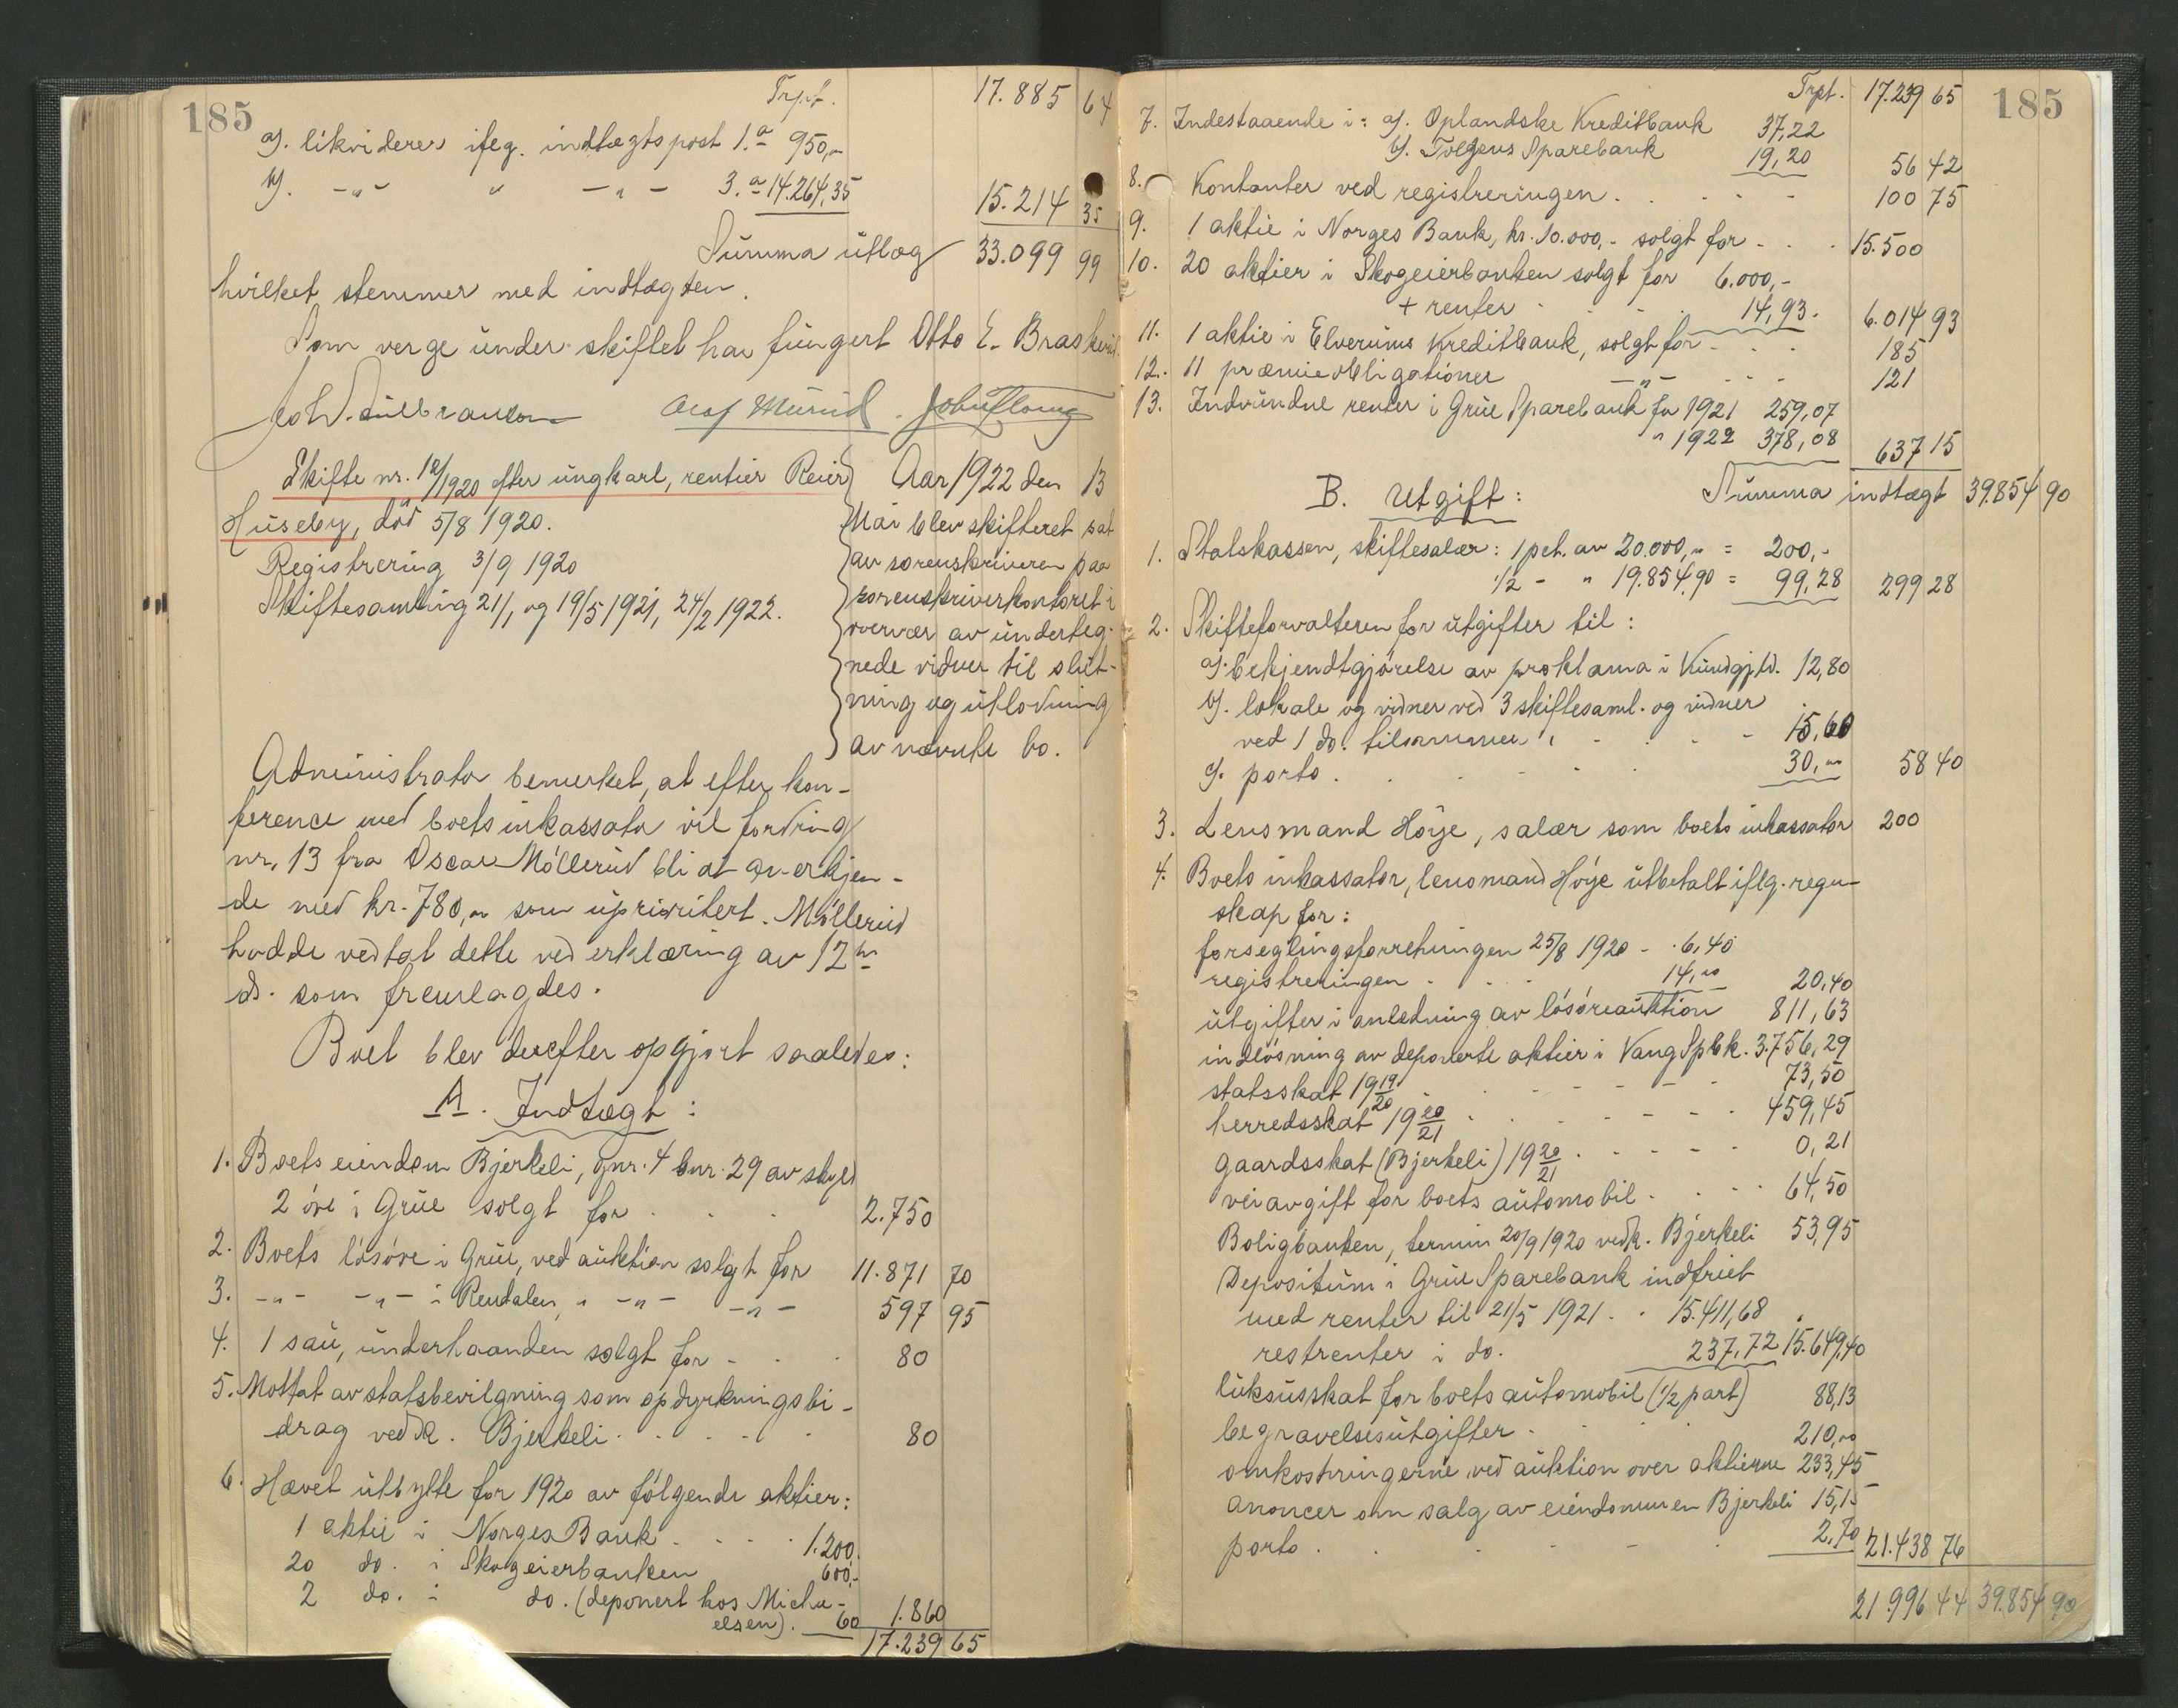 185
Trpt. 17.885 64
a). likviderer ifeg. indtægtspost 1.a 950,-
b). -"- " -"- 3.a 14.264,35 15.214 35
Summa utlæg 33.099 99
hvilket stemmer med indtægten.
Som verge under skiftet har fungert Otto E.
Olaf Mürud.
Skifte nr. 12/1920 efter ungkarl, rentier Reier
Huseby, död 5/8 1920.
Registrering 3/9 1920
Skiftesamling 21/1 og 19/5 1921, 24/2 1922.
Aar 1922 den 13
Mai blev skifteret sat
av sorenskriveren paa
sorenskriverkontoret i
overvær av underteg-
nede vidner til slut-
ning og utlodning
av nævnte bo.
Administrator bemerket, at efter kon-
ference med boets inkassator vil fordring
nr. 13 fra Oscar Möllerud bli at anerkjen-
de med kr. 780,00 som uprioritert. Möllerud
hadde vedtat dette ved erklæring av 12te
ds. som fremlagdes.
Boet blev derefter opgjort saaledes:
A. Indtægt:
1. Boets eiendom Bjerkeli, gnr. 4 bnr. 29 av skyld
2 öre i Grue solgt for . . . 2.750
2. Boets lösöre i Grue, ved auktion solgt for 11.871 70
3. -"- -"- i Rendalen, " -"- -"- 597 95
4. 1 sau, underhaanden solgt for - . . 80
5. Mottat av statsbevilgning som opdyrkningsbi-
drag vedk. Bjerkeli . . . . . 80
6. Hævet utbytte for 1920 av fölgende aktier:
1 aktie i Norges Bank . . . . 1.200.
20 do. i Skogeierbanken 600,-
2 do. i do. (deponert hos Micha-
elsen). 60 1.860
17.239 65
185
Trpt. 17.239 65
7. Indestaaende i: a). Oplandske Kreditbank 37,22
b). Tolgens Sparebank 19,20 56 42
8. Kontanter ved registreringen . . . . 100 75
9. 1 aktie i Norges Bank, kr. 10.000,- solgt for - . . 15.500
10. 20 aktier i Skogeierbanken solgt for 6.000,-
+ renter . . . 14,93. 6.014 93
11. 1 aktie i Elverums Kreditbank, solgt for - . . . 185
12. 11 præmieobligationer -"- . . . 121
13. Indvundne renter i Grue Sparebank for 1921 259,07
" 1922 378,08 637 15
Summa indtægt 39.854 90
B. Utgift:
1. Statskassen, skiftesalær: 1 pct. av 20.000,00 = 200,-
1/2 - " 19.854,90 = 99,28 299 28
2. Skifteforvalteren for utgifter til:
a). bekjendtgjörelse av proklama i Kundgjtd. 12,80
b). lokale og vidner ved 3 skiftesaml. og vidner
ved 1 do. tilsammen . . . . 15,60
c). porto . . . . . 30,00 58 40
3. Lensmand Höye, salær som boets inkassator 200
4. Boets inkassator, lensmand Höye utbetalt iflg. regn-
skap for:
forseglingsforretningen 25/8 1920 - . 6,40
registreringen . . . 14,00 20,40
utgifter i anledning av lösöreauktion 811,63
indlösning av deponerte aktier i Vang Spbk. 3.756,29
statsskat 19 19/20 . . . . . 73,50
herredsskat 19 20/21 . . . . . 459,45
gaardsskat (Bjerkeli) 19 20/21 . . . . 0,21
veiavgift for boets automobil . . . . 64,50
Boligbanken, termin 20/9 1920 vedk. Bjerkeli 53,95
Depositum i Grue Sparebank indfriet
med renter til 21/5 1921 . . 15.411,68
restrenter i do. 237,72 15.649,40
luksusskat for boets automobil (1/2 part) 88,13
begravelsesutgifter . . . 210,00
omkostningerne ved auktion over aktierne 233,45
anoncer om salg av eiendommen Bjerkeli 15,15
porto . . . . . 2,70 21.438 76
21.996 44 39.854 90